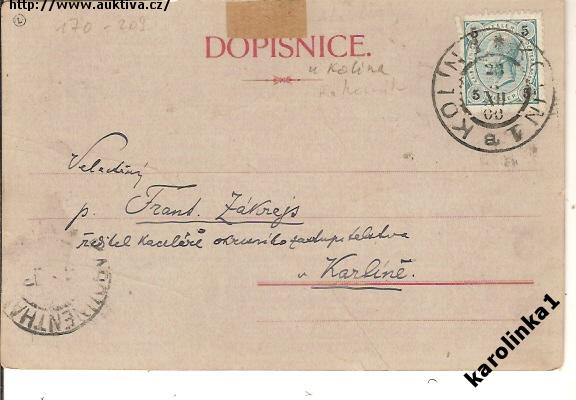 http://www.auktiva.cz/
170-209
DOPISNICE.
u Kolína
5 5
5 5
KOLÍN * KOLIN 1 a
28
XII
00
Velectěný
p. Frant. Zákrejs
ředitel kaceláře okresního zastupitelstva
v Karlíně.
KAROLINENTHAL
karolinka1